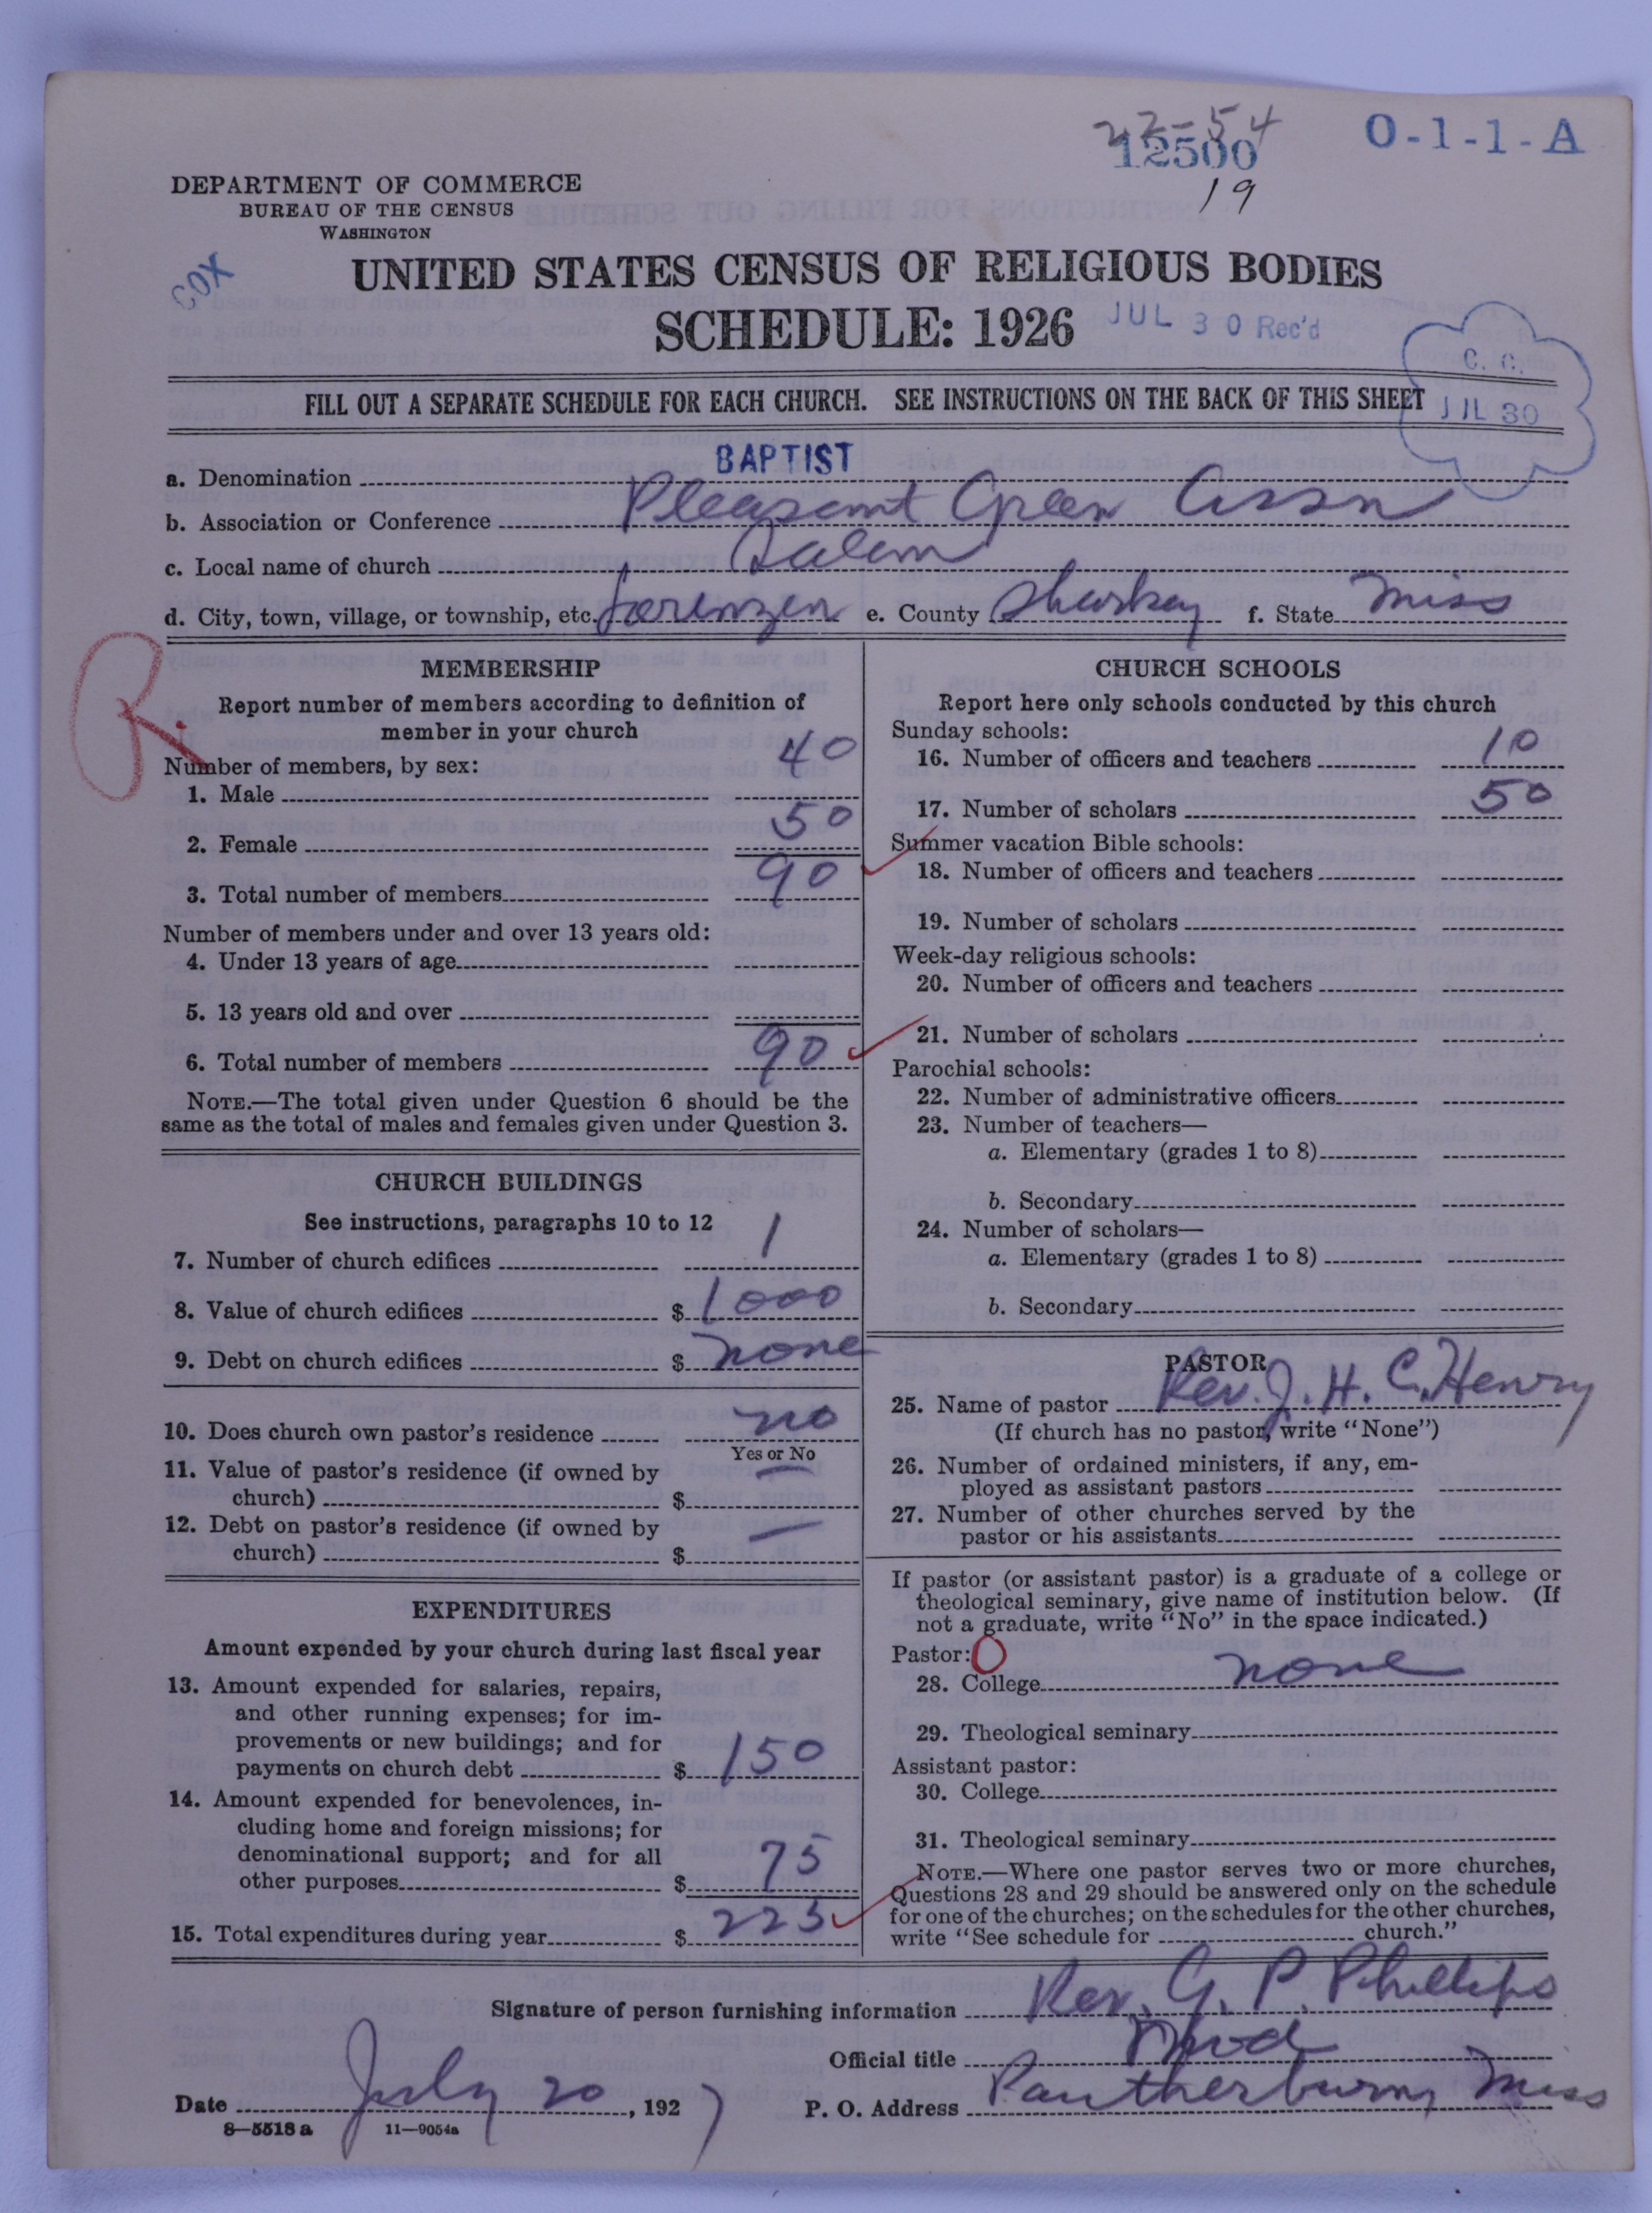 22-54
12500
19
O-1-1-A
DEPARTMENT OF COMMERCE
BUREAU OF THE CENSUS
WASHINGTON
COX
UNITED STATES CENSUS OF RELIGIOUS BODIES
SCHEDULE: 1926
JUL 30 Rec'd
C. C.
JUL 30
FILL OUT A SEPARATE SCHEDULE FOR EACH CHURCH. SEE INSTRUCTIONS ON THE BACK OF THIS SHEET
a. Denomination BAPTIST
b. Association or Conference Pleasant Green Assn
c. Local name of church Salem
d. City, town, village, or township, etc. Lorenzen e. County Sharkey f. State Miss
R.
MEMBERSHIP
Report number of members according to definition of
member in your church
Number of members, by sex:
1. Male 40
2. Female 50
3. Total number of members 90
Number of members under and over 13 years old:
4. Under 13 years of age
5. 13 years old and over
6. Total number of members 90
NOTE.—The total given under Question 6 should be the
same as the total of males and females given under Question 3.
CHURCH BUILDINGS
See instructions, paragraphs 10 to 12
7. Number of church edifices 1
8. Value of church edifices $ 1000
9. Debt on church edifices $ none
10. Does church own pastor's residence no
Yes or No
11. Value of pastor's residence (if owned by
church) $ —
12. Debt on pastor's residence (if owned by
church) $ —
EXPENDITURES
Amount expended by your church during last fiscal year
13. Amount expended for salaries, repairs,
and other running expenses; for im-
provements or new buildings; and for
payments on church debt $ 150
14. Amount expended for benevolences, in-
cluding home and foreign missions; for
denominational support; and for all
other purposes $ 75
15. Total expenditures during year $ 225
CHURCH SCHOOLS
Report here only schools conducted by this church
Sunday schools:
16. Number of officers and teachers 10
17. Number of scholars 50
Summer vacation Bible schools:
18. Number of officers and teachers
19. Number of scholars
Week-day religious schools:
20. Number of officers and teachers
21. Number of scholars
Parochial schools:
22. Number of administrative officers
23. Number of teachers—
a. Elementary (grades 1 to 8)
b. Secondary
24. Number of scholars—
a. Elementary (grades 1 to 8)
b. Secondary
PASTOR
25. Name of pastor Rev. J. H. C. Henry
(If church has no pastor, write "None")
26. Number of ordained ministers, if any, em-
ployed as assistant pastors
27. Number of other churches served by the
pastor or his assistants
If pastor (or assistant pastor) is a graduate of a college or
theological seminary, give name of institution below. (If
not a graduate, write "No" in the space indicated.)
Pastor: O
28. College none
29. Theological seminary
Assistant pastor:
30. College
31. Theological seminary
NOTE.—Where one pastor serves two or more churches,
Questions 28 and 29 should be answered only on the schedule
for one of the churches; on the schedules for the other churches,
write "See schedule for church."
Signature of person furnishing information Rev. G. P. Phillips
Official title Mod
Date July 20, 1927 P. O. Address Pantherburn, Miss
8—5518 a 11—9054a